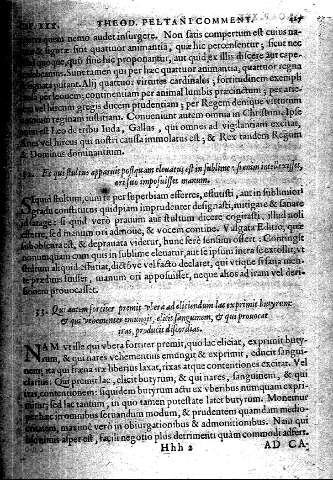 THEOD. PELTANI COMMENT.
quam nemo audet insurgere. Non satis compertum est cuius na-
figuræ sint quattuor animantia, quæ hic percensentur; sicut nec
quoque, quò fine hic proponantur, aut quid ex illis discere aut cape-
Sunt tamen qui per hæc quattuor animantia, quatuor regna
putant. Alij quatuor virtutes cardinales; fortitudinem exempli
per leonem; continentiam per animal lumbis præcinctum; per arie-
vel hircum gregis ducem prudentiam; per Regem denique virtutum
reginam iustitiam. Conueniunt autem omnia in Christum. Ipse
est Leo de tribu Iuda, Gallus, qui omnes ad vigilantiam excitat,
vel hircus qui nostri causa immolatus est; & Rex tandem Regum
Dominus dominantium.
32. Et qui stultus apparuit postquam eleuatus est in sublime: si enim intellexisset,
ori suo imposuisset manum.
Si quid stultum, cum te per superbiam efferres, effutisti, aut in sublimiori
gradu constitutus quidpiam imprudenter designasti, mitigare & sanare
stude: si quid verò prauum aut stultum dicere cogitasti, illud noli
efferre, sed manum ori admoue, & vocem contine. Vulgata Editio, quæ
subobscura est, & deprauata videtur, hunc ferè sensum offert: Contingit
nonnumquam cum quis in sublime eleuatur, aut se ipsum intrà se extollit, vt
stultum aliquid effutiat, dictóve vel facto declaret, qui vtique si sana men-
te præditus fuisset, manum ori apposuisset, neque alios ad iram vel deri-
sionem prouocasset.
33. Qui autem fortiter premit vbera ad eliciendum lac exprimit butyrum:
& qui vehementer emungit, elicit sanguinem, & qui prouocat
iras, producit discordias.
NAM vt ille qui vbera fortiter premit, quo lac eliciat, exprimit buty-
rum, & qui nares vehementius emungit & exprimit, educit sangui-
nem: ita qui fræna iræ liberius laxat, rixas atque contentiones excitat. Vel
clarius: Qui premit lac, elicit butyrum; & qui nares, sanguinem, & qui
iras, contentionem: siquidem butyrum actu ex vberibus numquam expri-
mitur; sed lac tantum, in quo tamen potestate latet butyrum. Monemur
per hæc in omnibus seruandum modum, & prudentem quandam medio-
critatem, maximè verò in obiurgationibus & admonitionibus. Nam qui
nimium asper est, facit negotio plus detrimenti quàm commodi adfert.
Hhh 2
AD CA-